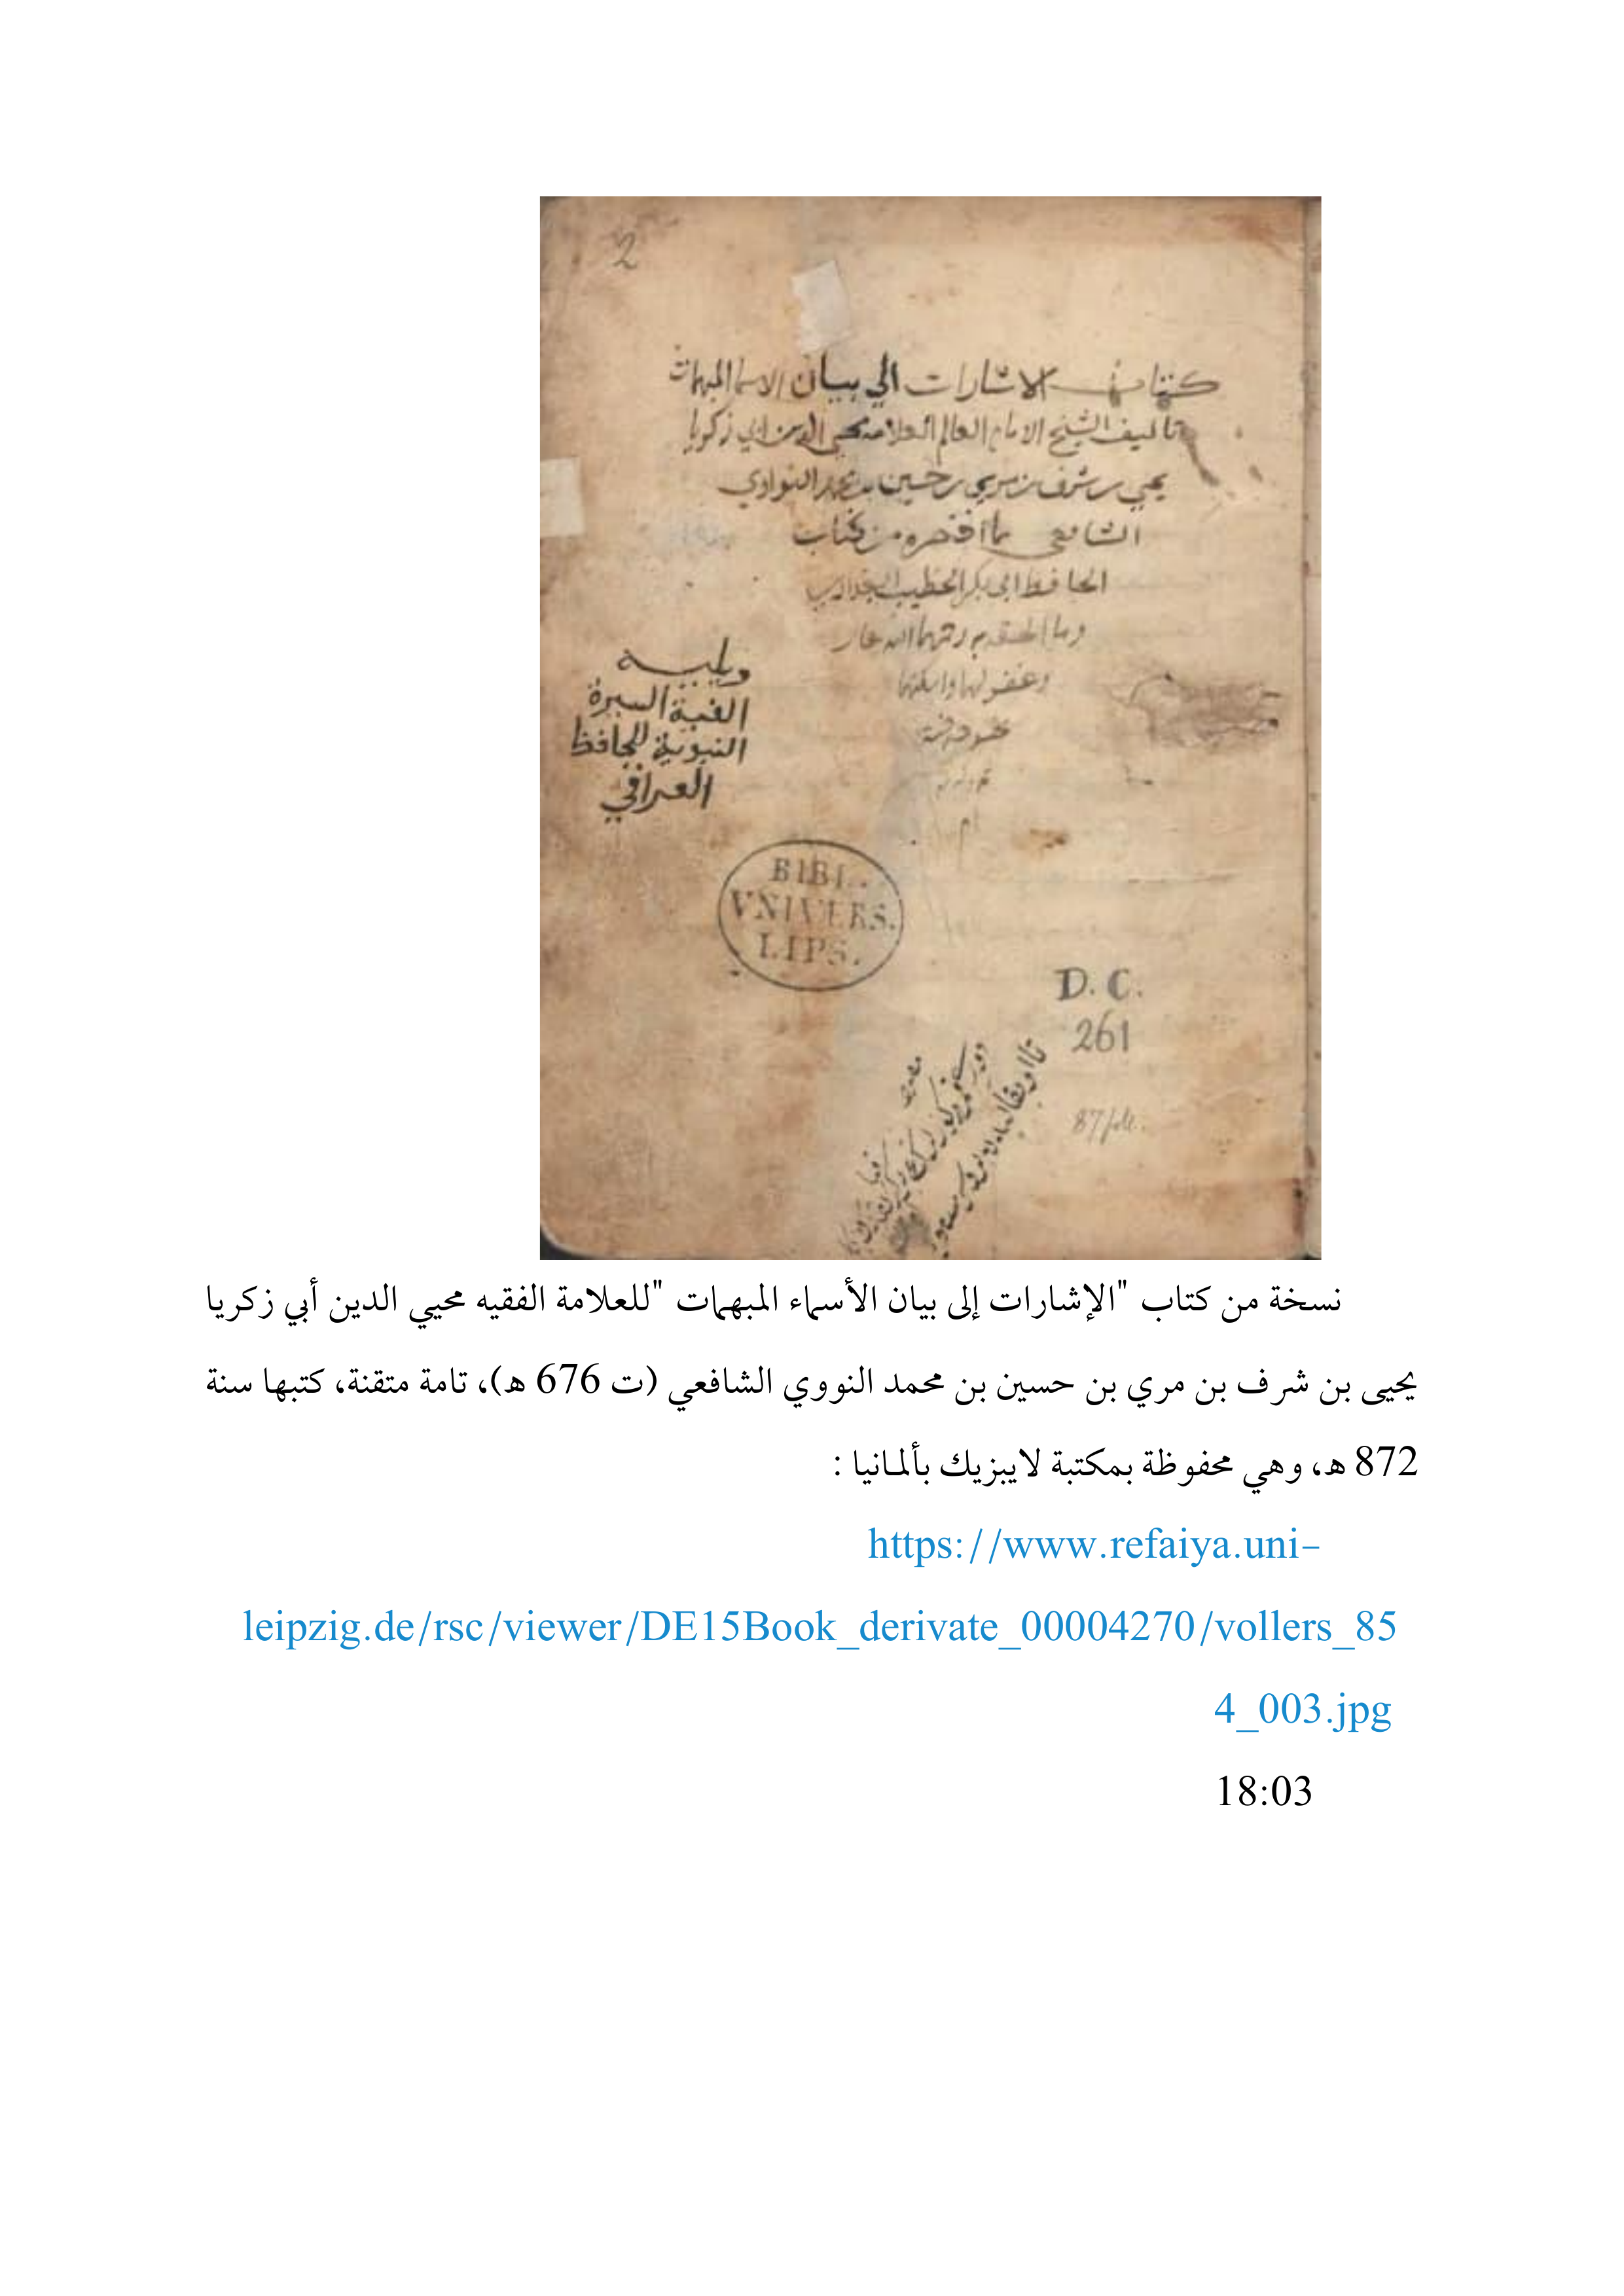 2
كتاب الاشارات الي بيان الاسما المبهمات
تاليف الشيخ الامام العالم العلامة محيي الدين ابي زكريا
يحيي بن شرف بن مري بن حسين بن محمد النواوي
الشافعي مما اختصره من كتاب
الحافظ ابي بكر الخطيب البغدادي
وما الحقه به رحمهما الله تعالى
وغفر لهما واسكنهما
ويليه
الفية السيرة
النبوية للحافظ
العراقي
BIBL.
VNIVERS.
LIPS.
D. C.
261
نسخة من كتاب "الإشارات إلى بيان الأسماء المبهمات "للعلامة الفقيه محيي الدين أبي زكريا
يحيى بن شرف بن مري بن حسين بن محمد النووي الشافعي (ت 676 ه)، تامة متقنة، كتبها سنة
872 ه، وهي محفوظة بمكتبة لايبزيك بألمانيا :
https://www.refaiya.uni-
leipzig.de/rsc/viewer/DE15Book_derivate_00004270/vollers_85
4_003.jpg
18:03